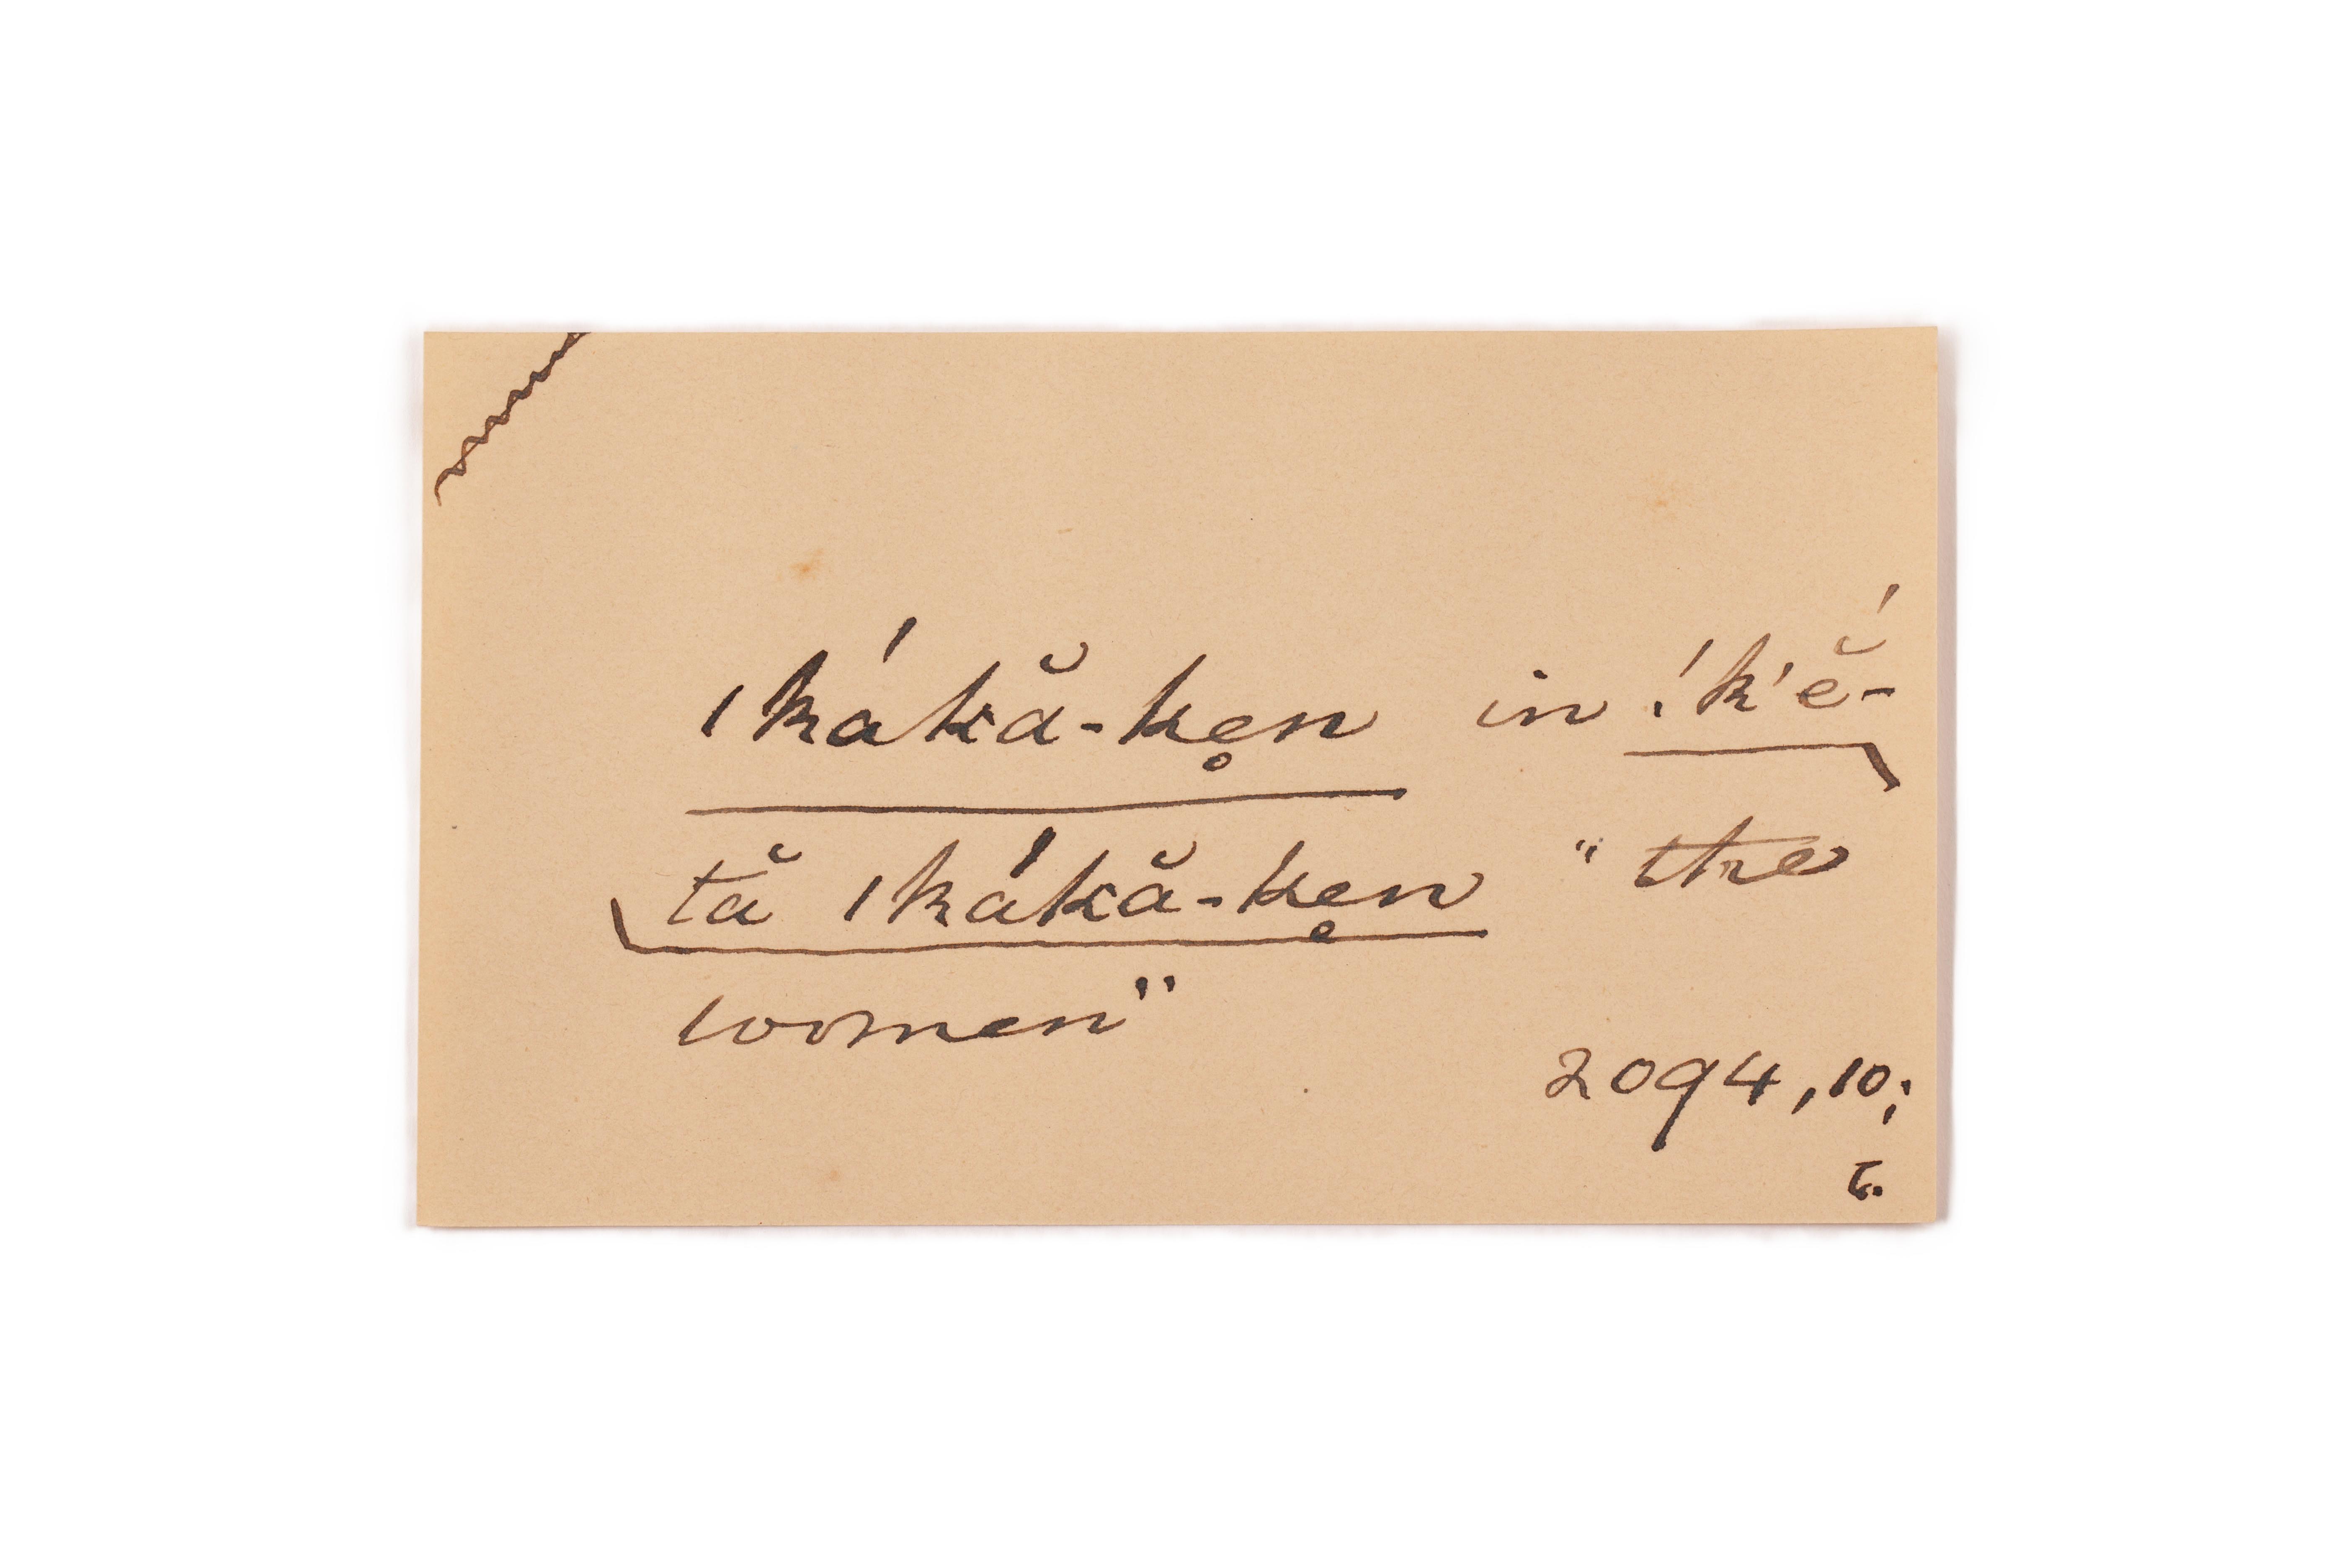 ǀkákă-ke̥n in ǃk'ĕ́-
tă ǀkákă-ke̥n "the
women"
2094, 10;